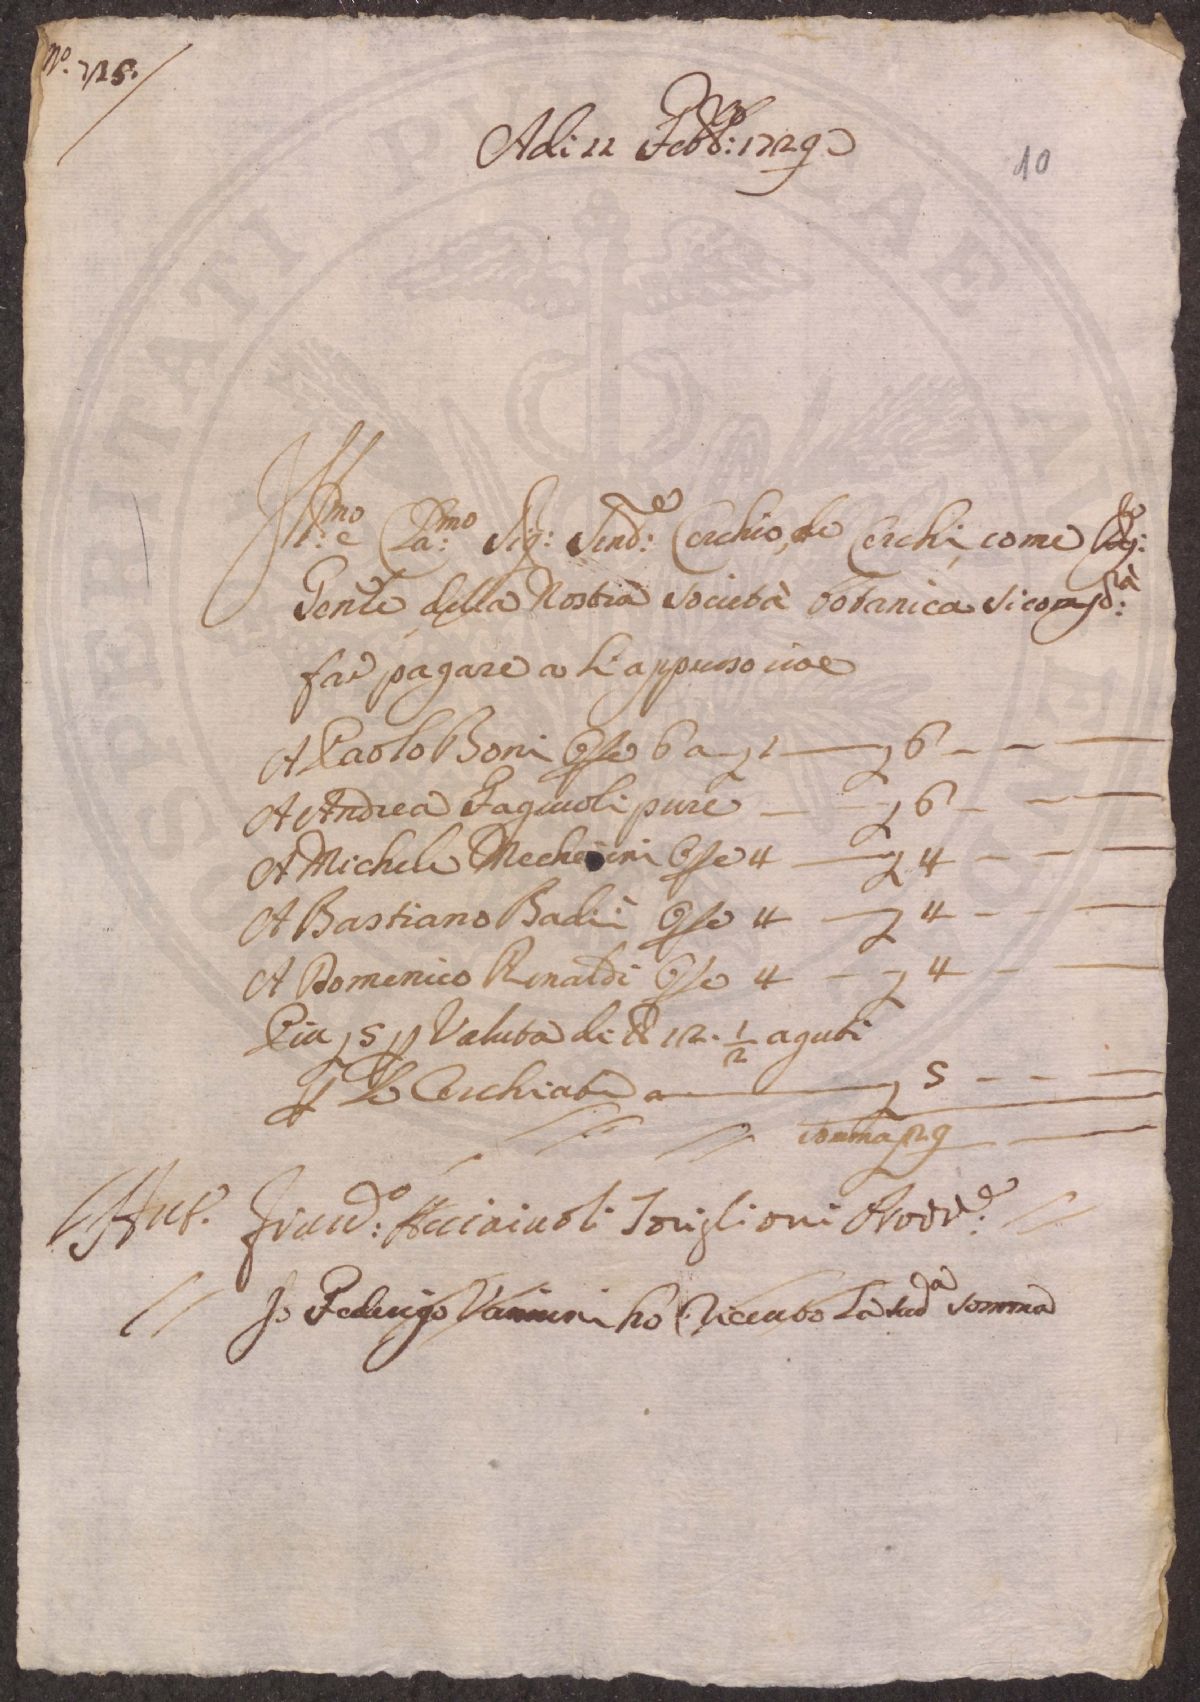 N.o 725.
Adi 11 Febb.o: 1729
10
Ill.mo e Cla.mo Sig: Send.e: Cerchio de Cerchi, come
Gente della Nostra Società botanica si comp.rà:
far pagare a li appresso cioe
A Paolo Boni Opre 6 a 1 6
A Andrea Fagiuoli pure 6
A Michele Mecherini Opre 4 4
A Bastiano Badii Opre 4 4
A Domenico Rinaldi Opre 4 4
Piu 5 p Valuta di 12. 1/2 aguti
p le Cerchiate a 5
somma 29
Aut. Franc.o: Acciaiuoli Toriglioni Provv.e:
Io Federigo Vannini hò riceuto la sud.a somma